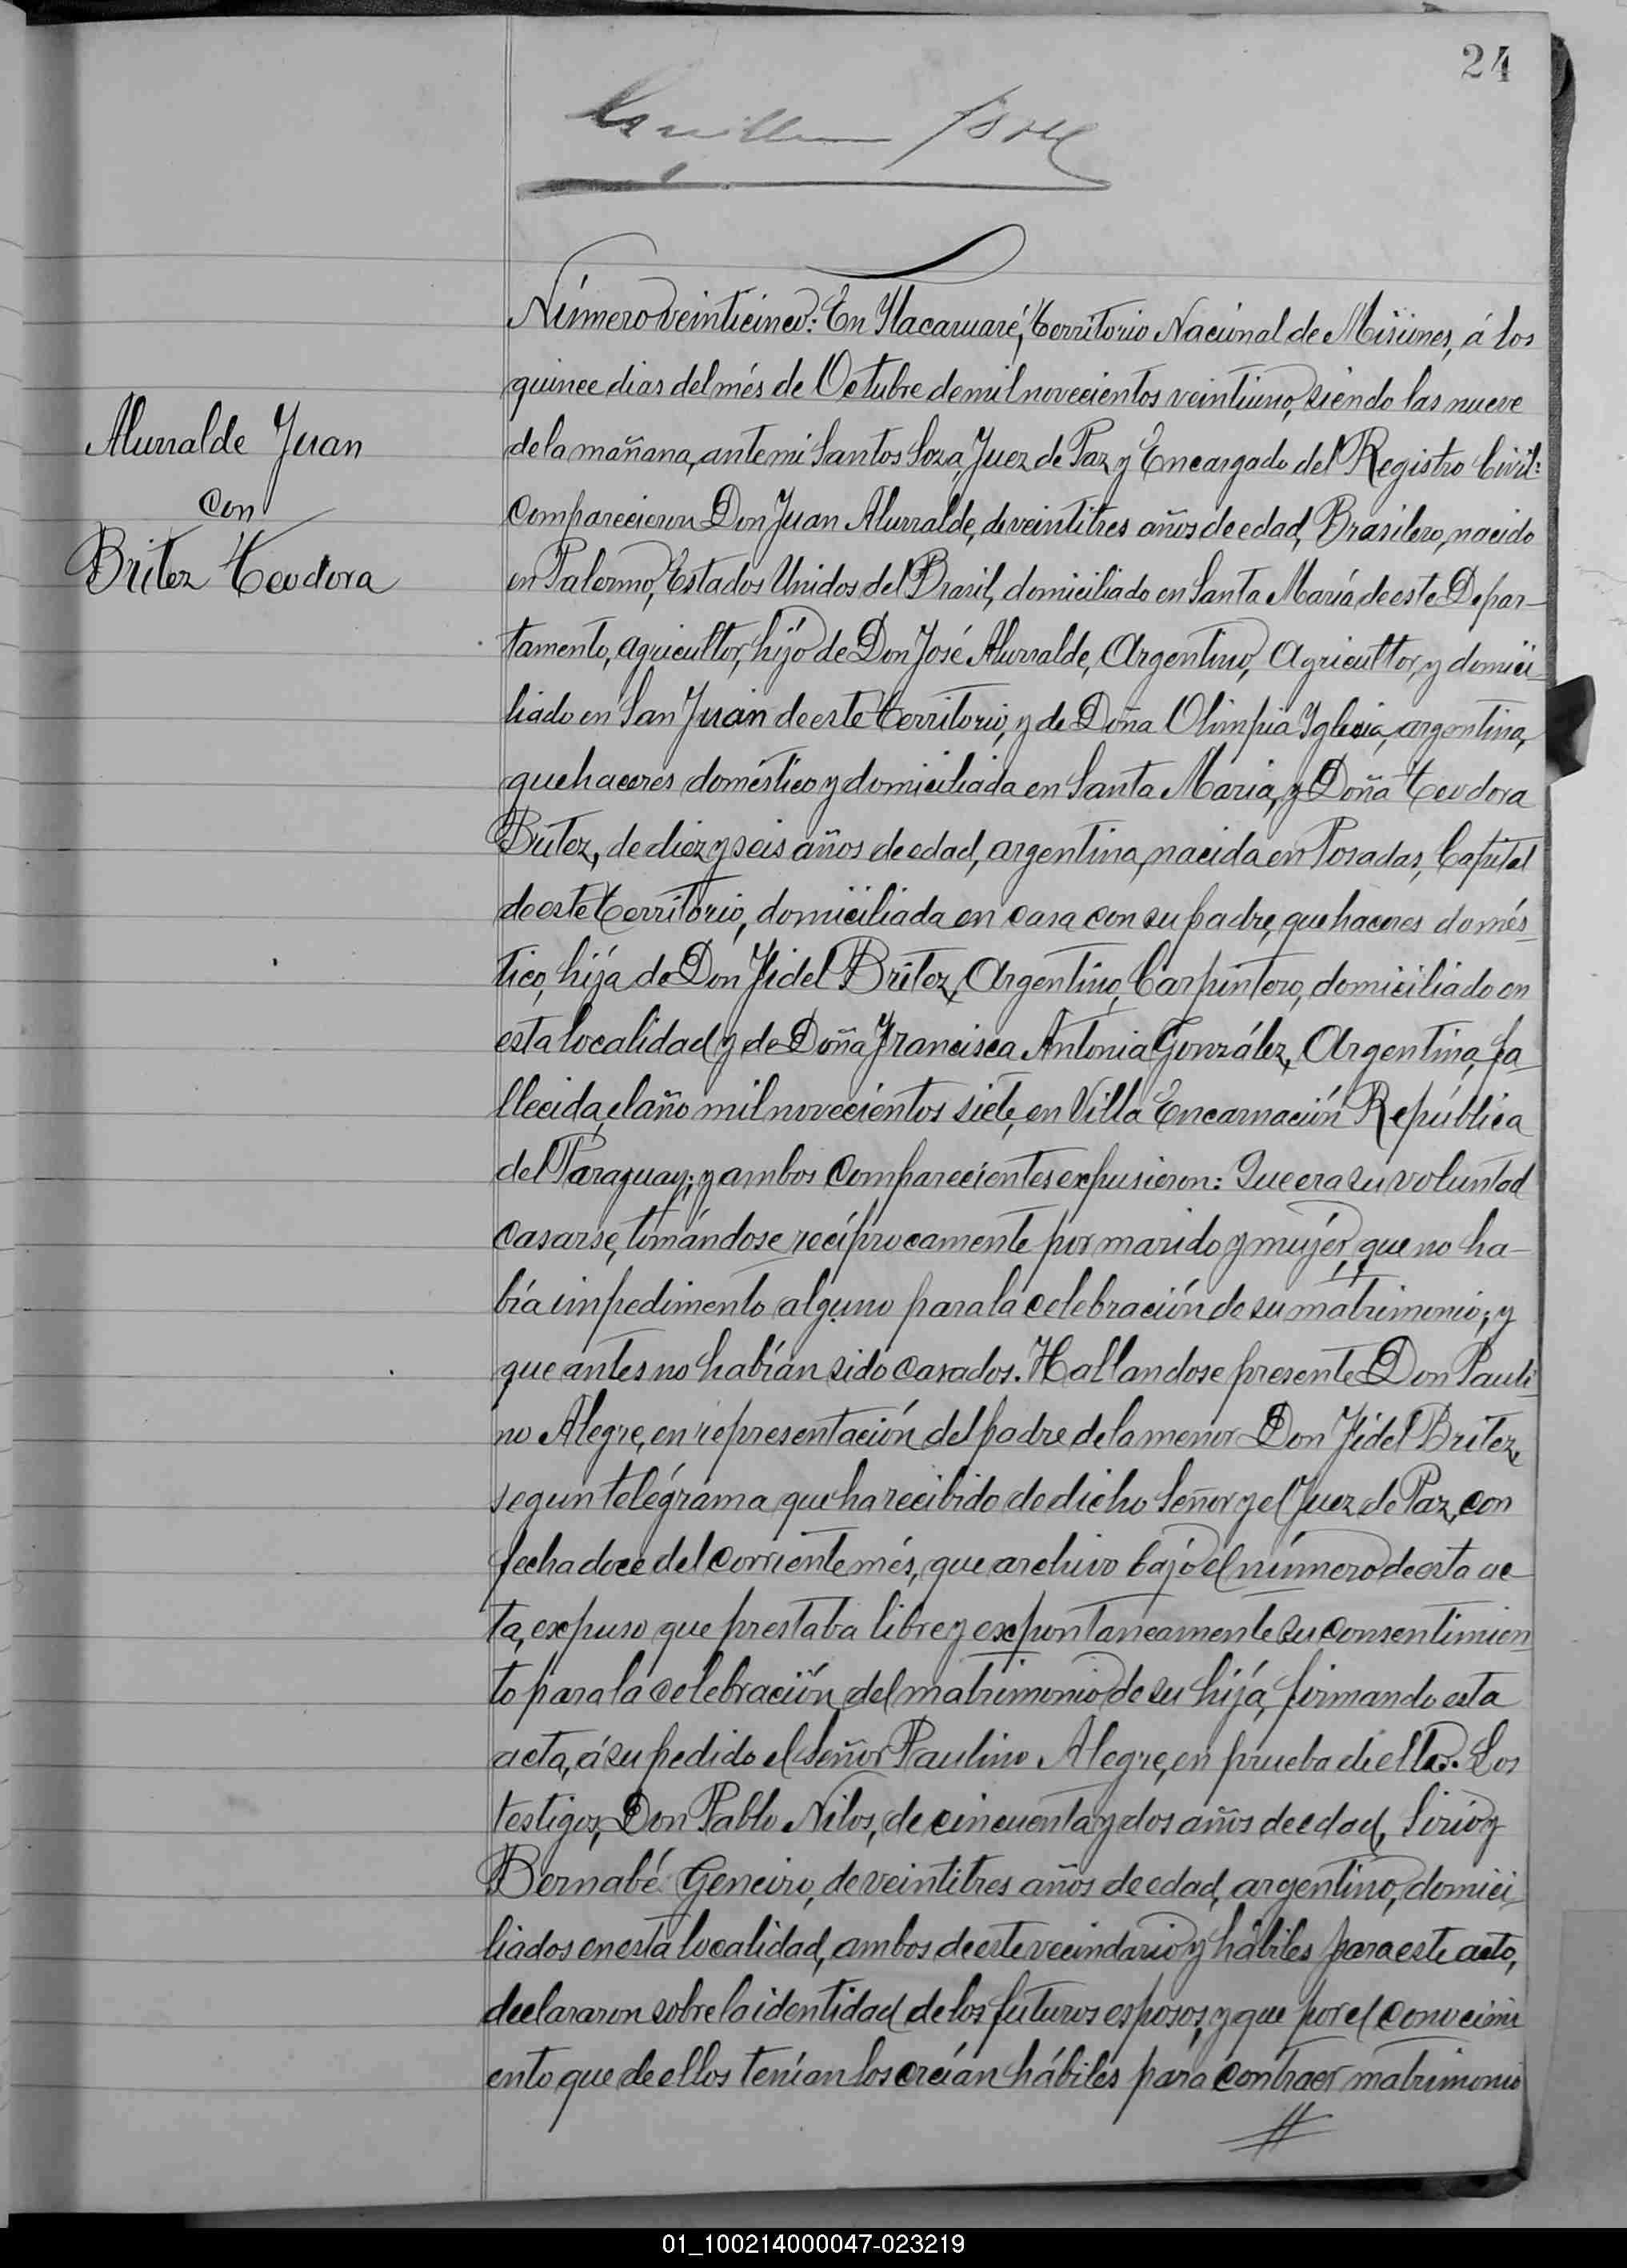 24
Número veinticinco: En Itacaruaré, Territorio Nacional de Misiones, á los
quince dias del més de Octubre de mil novecientos veintiuno, siendo las nueve
Alurralde Juan
de la mañana, ante mi Santos Soza, Juez de Paz y Encargado del Registro Civil:
con
comparecieron Don Juan Alurralde, de veintitres años de edad, Brasilero, nacido
Britez Teodora
en Palermo, Estados Unidos del Brasil, domiciliado en Santa María de este Depar-
tamento, agricultor, hijo de Don José Alurralde, Argentino, Agricultor, y domici-
liado en San Juan de este territorio, y de Doña Olimpia Iglesia, argentina,
quehaceres doméstico y domiciliada en Santa Maria, y Doña Teodora
Britez, de diez y seis años de edad, argentina, nacida en Posadas, Capital
de este territorio, domiciliada en casa con su padre, quehaceres domés-
tico, hija de Don Fidel Britez, Argentino, Carpintero, domiciliado en
esta localidad y de Doña Francisca Antonia González, Argentina, fa-
llecida, el año mil novecientos siete, en Villa Encarnación República
del Paraguay; y ambos comparecientes expusieron: Que era su voluntad
casarse, tomándose recíprocamente por marido y mujér, que no ha-
bía impedimento alguno para la celebración de su mátrimonio; y
que antes no habían sido casados. Hallandose presente Don Pauli-
no Alegre, en representación del padre de la menor Don Fidel Britez,
segun telégrama que ha recibido de dicho Señor y el Juez de Paz, con
fecha doce del corriente més, que archivo bajo el número de esta ac-
ta, expuso que prestaba libre y expontaneamente su consentimien-
to para la celebración del matrimonio de su hija, firmando esta
acta, á su pedido el Señor Paulino Alegre, en prueba di ello. Los
testigos, Don Pablo Nilos, de cincuenta y dos años de edad, Sirio y
Bernabé Geneiro, de veintitres años de edad, argentino, domici-
liados en esta localidad, ambos de este vecindario y hábiles para este acto,
declararon sobre la identidad de los futuros esposos, y que por el conocimi
ento que de ellos tenían los creían hábiles para contraer matrimonio
01_100214000047-023219